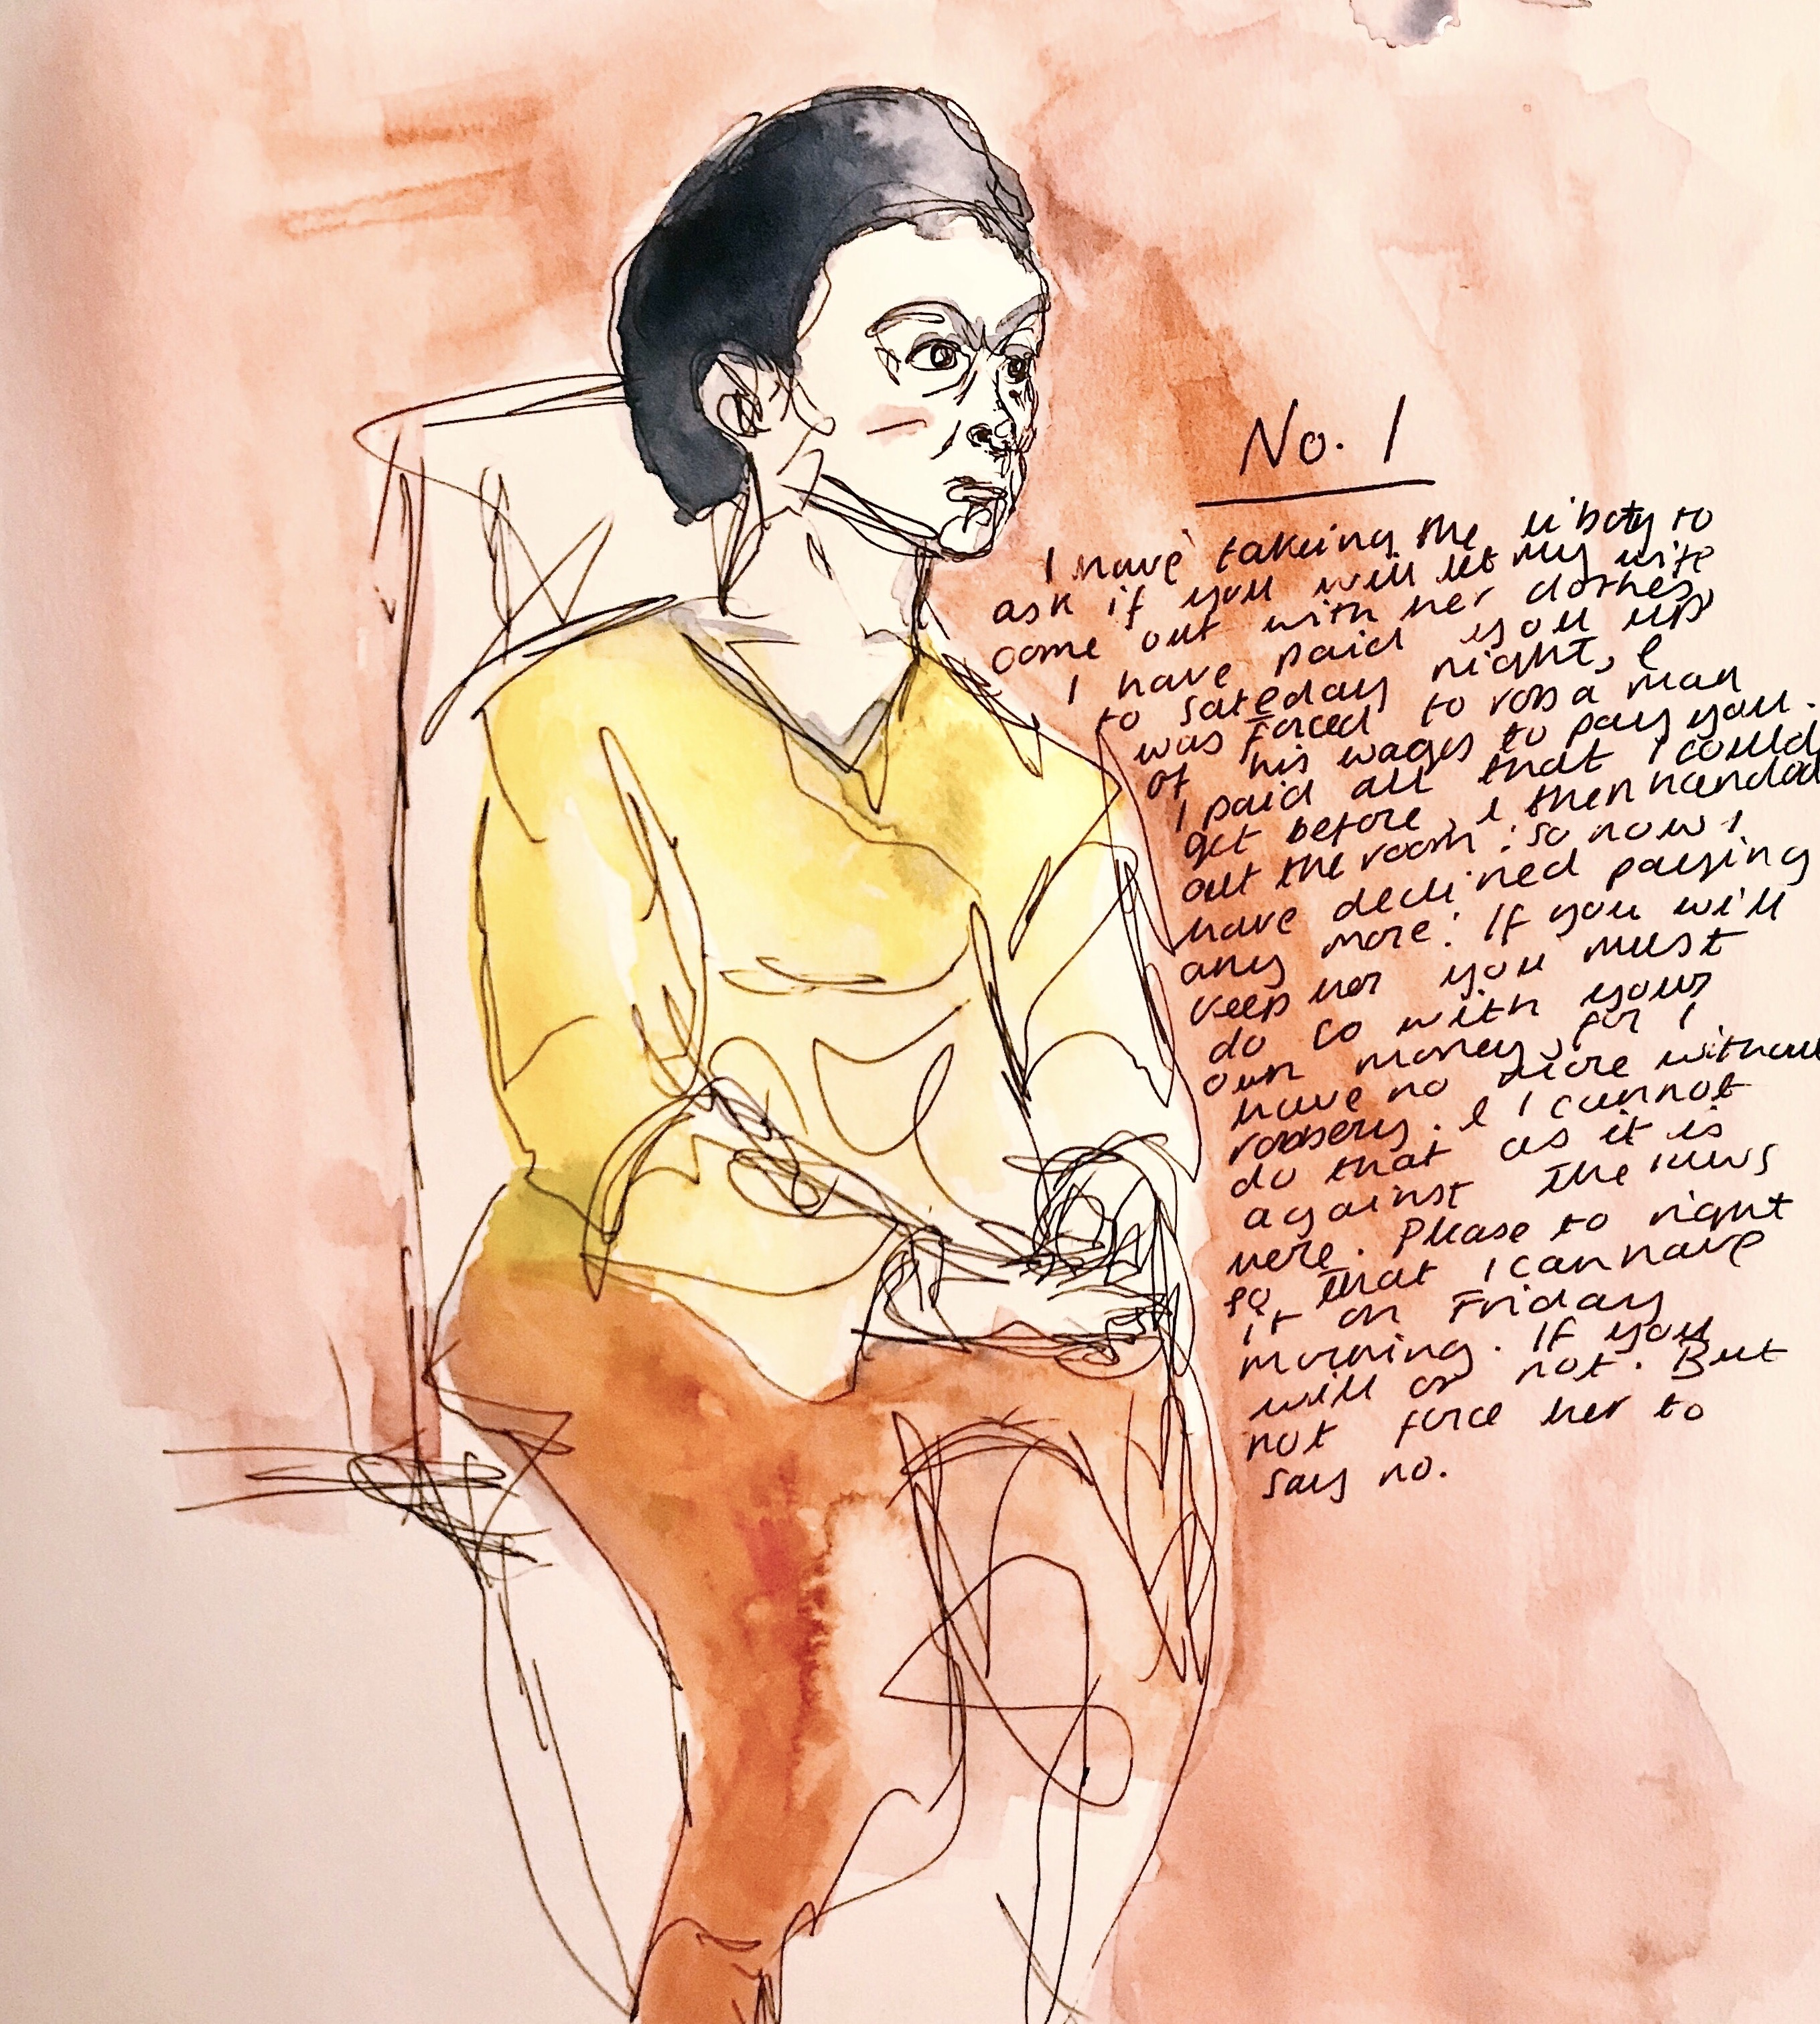 No. 1
I have takeing the liboty to
ask if you will let my wife
come out with her clothes,
I have paid you up
to Sateday night, &
was forced to rob a man
of his wages to pay you.
I paid all that I could
get before, & then handad
out the room: so now I
have declined paying
any more: If you will
keep her you must
do so with your
own money, for I
have no more without
robbery. & I cannot
do that as it is
against the laws
here. Please to right
so that I can have
it on Friday
morning. If you
will or not. But
not force her to
say no.